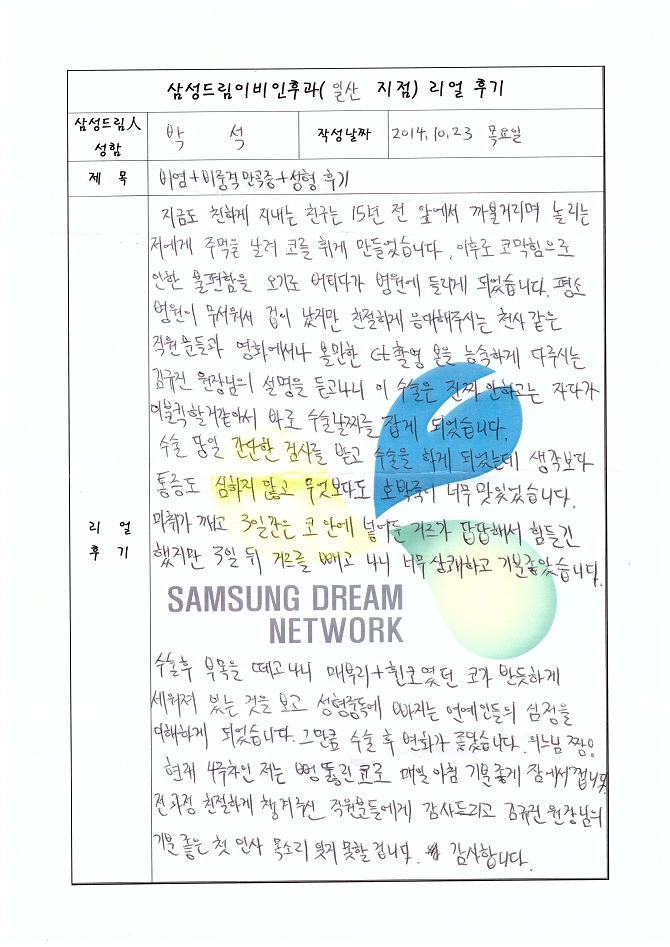 삼성드림이비인후과( 일산 지점) 리얼 후기
삼성드림人 성함
박 석
작성날짜
2014.10.23 목요일
제 목
비염+비중격만곡증+성형 후기
리 얼 후 기
지금도 친하게 지내는 친구는 15년 전 앞에서 까불거리며 놀리는
저에게 주먹을 날려 코를 휘게 만들었습니다. 이후로 코막힘으로
인한 불편함을 오기로 버티다가 병원에 들리게 되었습니다. 평소
병원이 무서워서 겁이 났지만 친절하게 응대해주시는 천사 같은
직원분들과 영화에서나 볼만한 ct촬영 본을 능숙하게 다루시는
김규진 원장님의 설명을 듣고나니 이 수술은 진짜 안하고는 자다가
이불킥할거같아서 바로 수술날짜를 잡게 되었습니다.
수술 당일 간단한 검사를 받고 수술을 하게 되었는데 생각보다
통증도 심하지 않고 무엇보다도 호박죽이 너무 맛있었습니다.
마취가 깨고 3일간은 코 안에 넣어둔 거즈가 답답해서 힘들긴
했지만 3일 뒤 거즈를 빼고 나니 너무 상쾌하고 기분좋았습니다.
SAMSUNG DREAM
NETWORK
수술후 부목을 떼고나니 매부리+휜코였던 코가 반듯하게
세워져 있는 것을 보고 성형중독에 빠지는 연예인들의 심정을
이해하게 되었습니다. 그만큼 수술 후 변화가 좋았습니다. 의느님 짱!
현재 4주차인 저는 뻥 뚫린 코로 매일 아침 기분좋게 잠에서 깹니다.
전 과정 친절하게 챙겨주신 직원분들에게 감사드리고 김규진 원장님의
기분 좋은 첫 인사 목소리 잊지 못할 겁니다. 감사합니다.